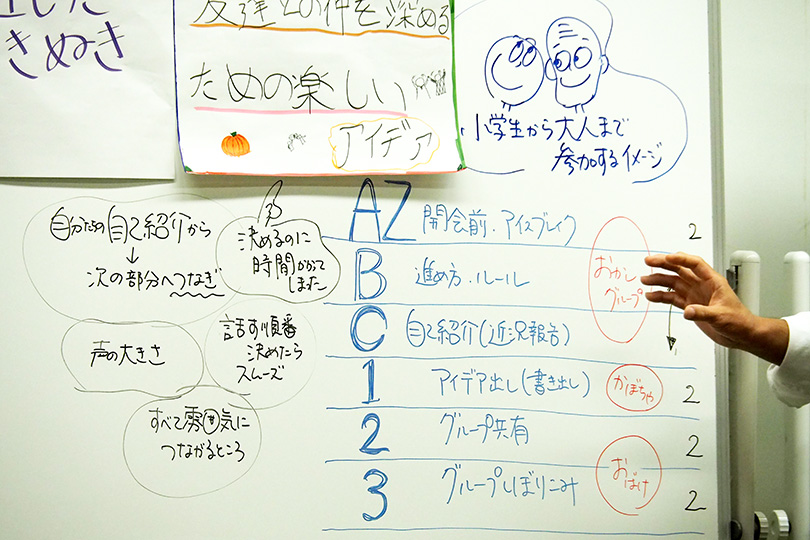 きぬき
友達との仲を深める
ための楽しい
アイデア
小学生から大人まで
参加するイメージ
自分たちの自己紹介から
↓
次の部分へつなぎ
決めるのに
時間かかって
しまった
声の大きさ
話す順番
決めたら
スムーズ
すべて雰囲気に
つながるところ
AZ 開会前・アイスブレイク 2
B 進め方・ルール
おかし
グループ
C 自己紹介(近況報告)
1 アイデア出し(書き出し) かぼちゃ 2
2 グループ共有 2
おばけ
3 グループしぼりこみ 2